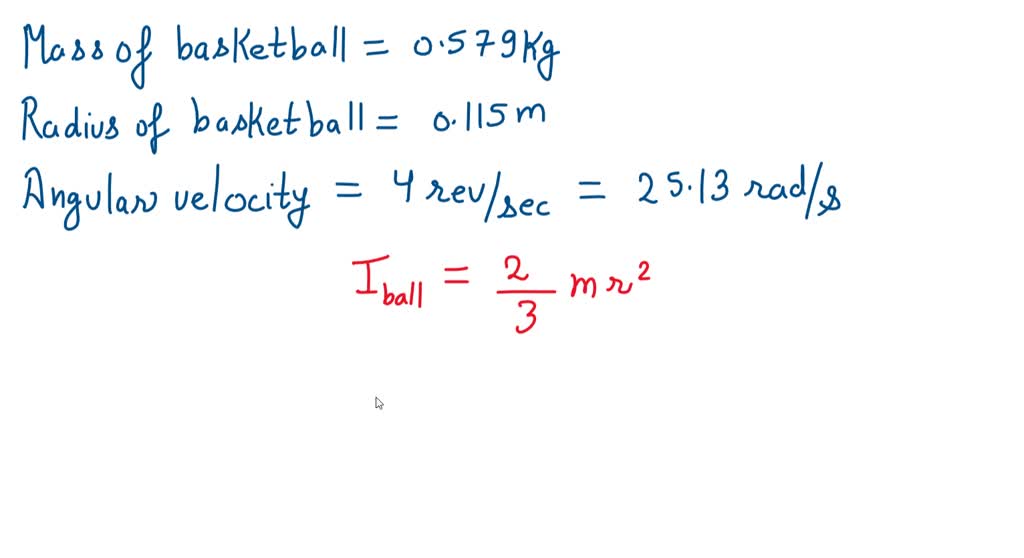 Mass of basketball = 0.579Kg
Radius of basketball = 0.115m
Angular velocity = 4 rev/sec = 25.13 rad/s
I_ball = 2/3 mr²